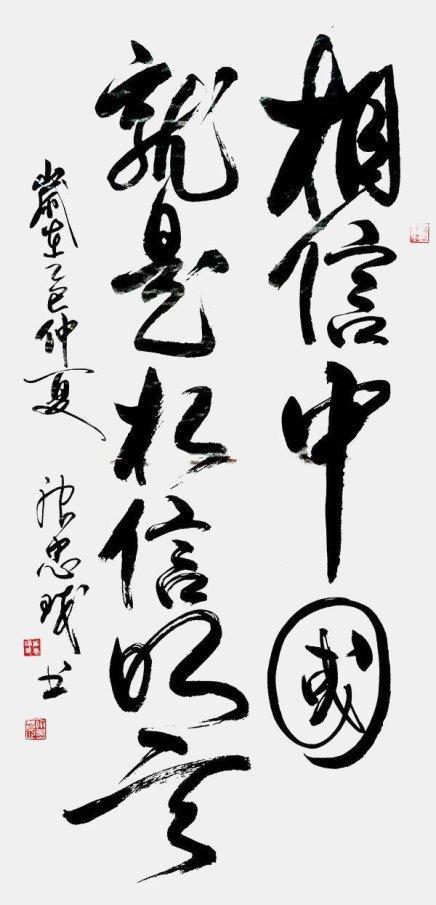 相信中國
就是相信明天
歲在乙巳仲夏
張忠 书